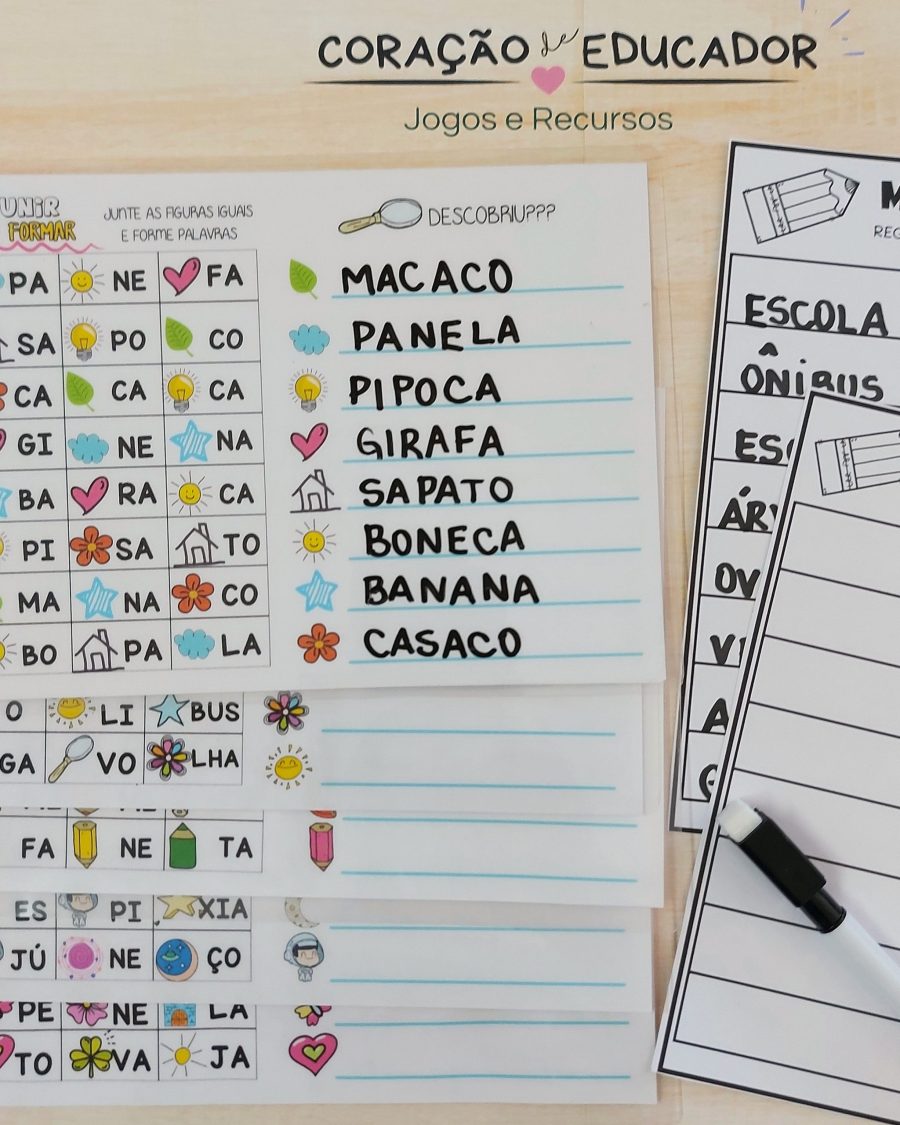 CORAÇÃO de EDUCADOR
Jogos e Recursos
UNIR
FORMAR
JUNTE AS FIGURAS IGUAIS
E FORME PALAVRAS
DESCOBRIU???
PA NE FA MACACO
SA PO CO PANELA
CA CA CA PIPOCA
GI NE NA GIRAFA
BA RA CA SAPATO
PI SA TO BONECA
MA NA CO BANANA
BO PA LA CASACO
O LI BUS
GA VO LHA
FA NE TA
ES PI XIA
JÚ NE ÇO
PE NE LA
TO VA JA
ESCOLA
ÔNIBUS